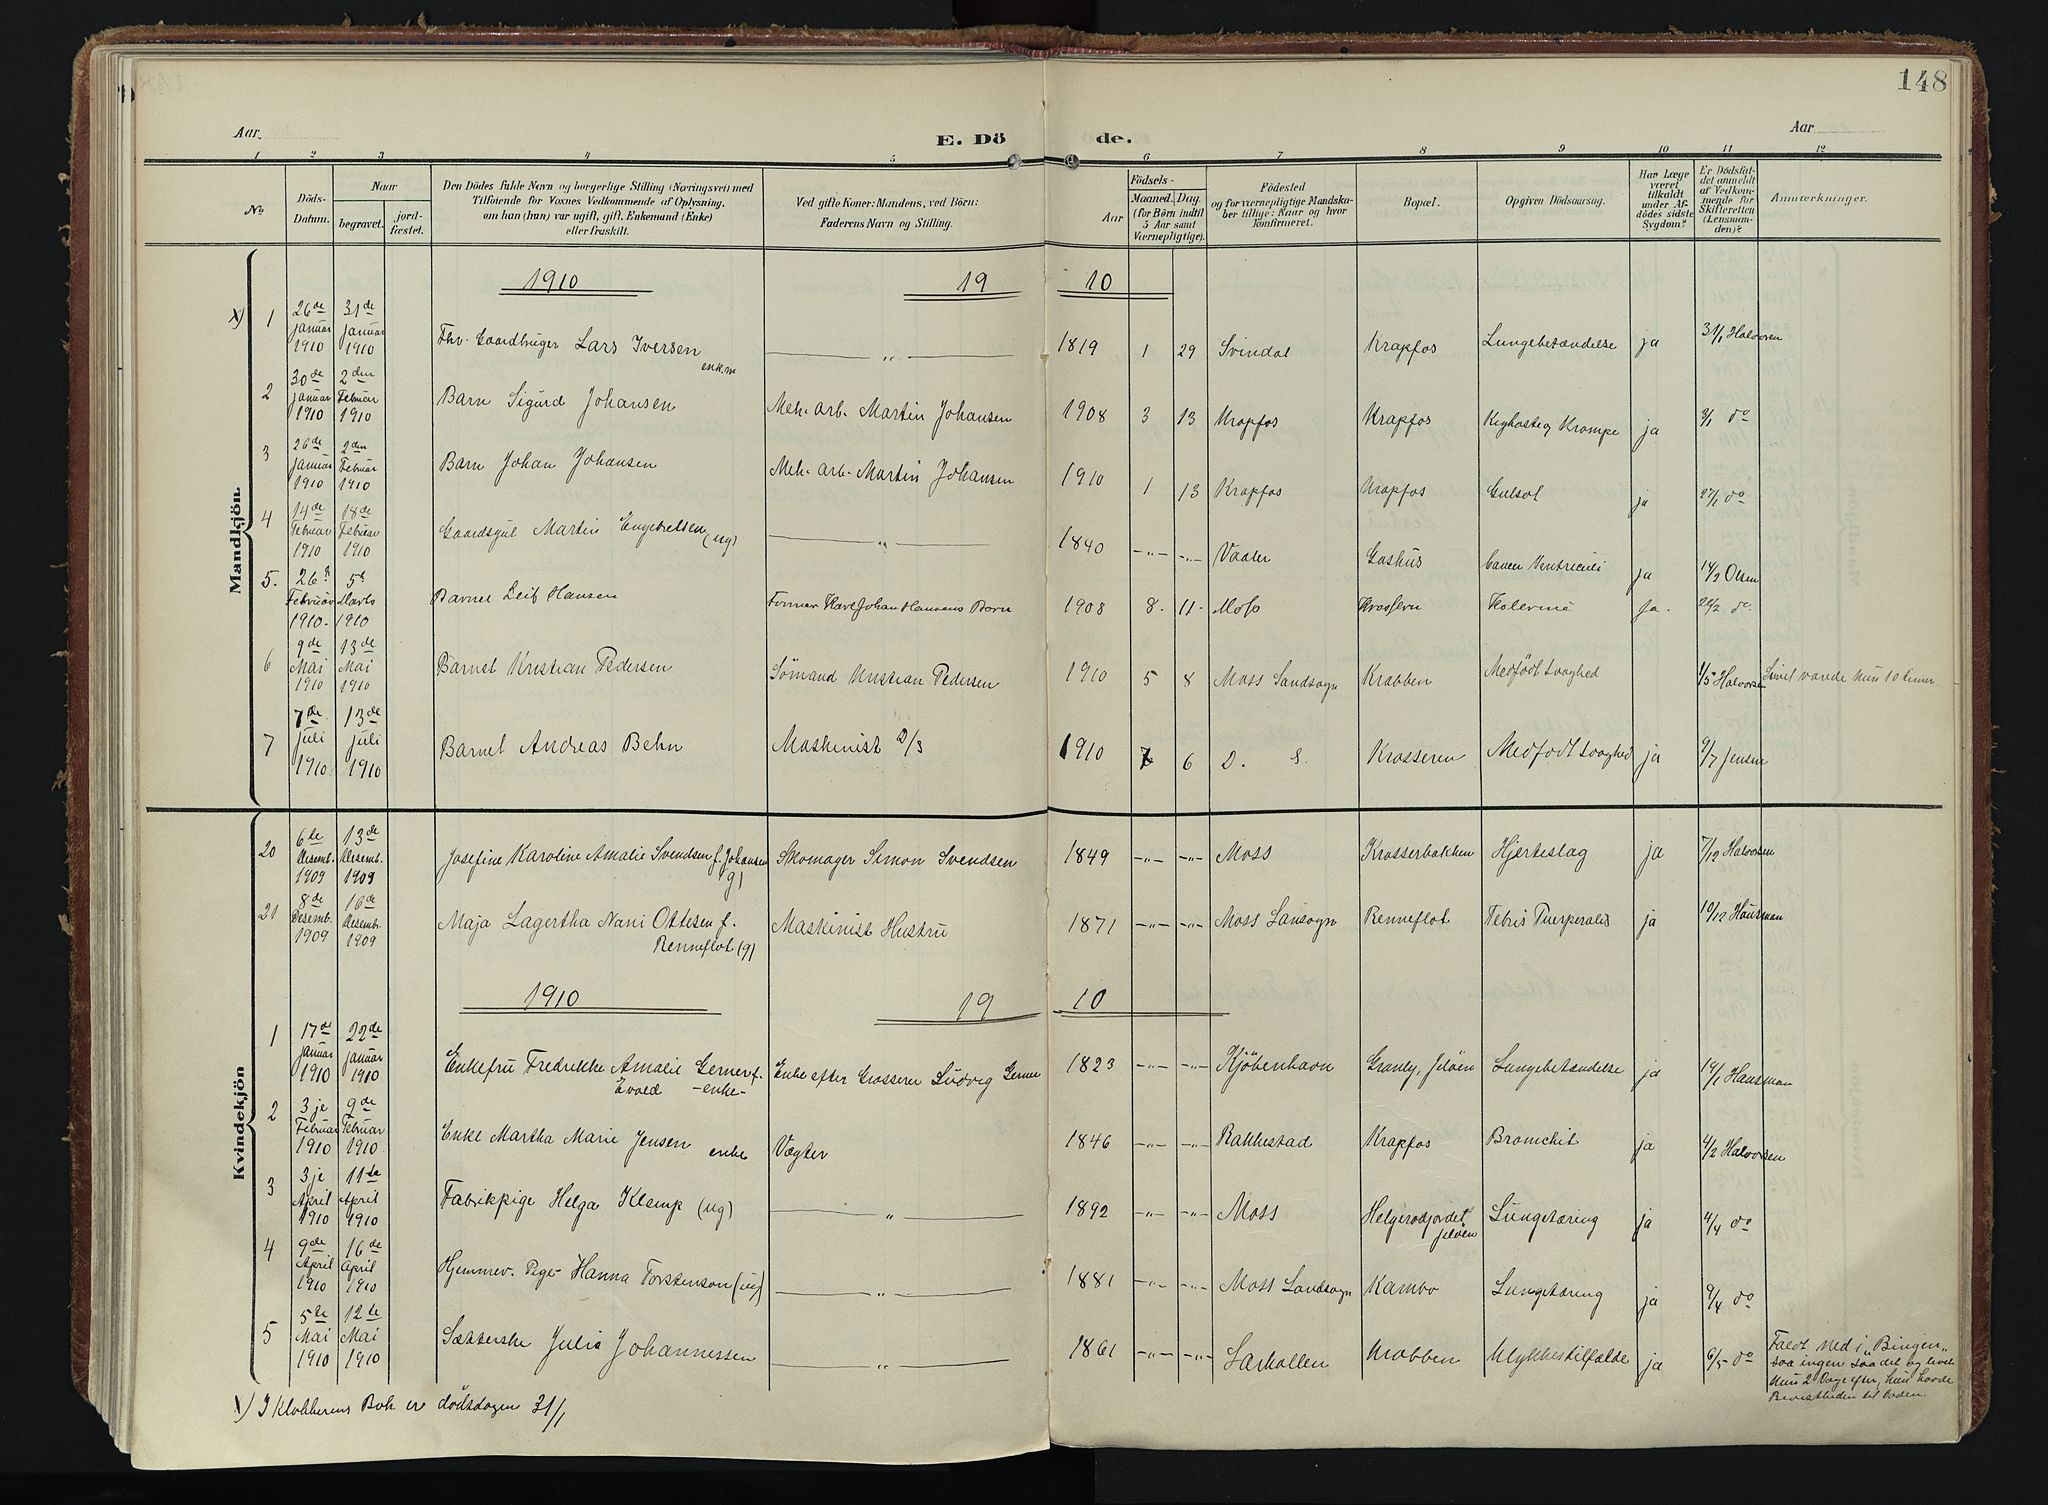 148
Aar.
E. Döde.
Aar
1 2 3 4 5 6 7 8 9 10 11 12
No
Döds-Datum.
Naar begravet. jordfæstet.
Den Dödes fulde Navn og borgerlige Stilling (Næringsvei) med Tilföiende for Voxnes Vedkommende af Oplysning, om han (hun) var ugift, gift, Enkemand (Enke) eller fraskilt.
Ved gifte Koner: Mandens, ved Börn: Faderens Navn og Stilling.
Födsels-
Aar
Maaned. Dag.
(for Börn indtil 5 Aar samt Værnepligtige).
Födested og for værnepligtige Mandskaber tillige: Naar og hvor konfirmeret.
Bopæl.
Opgiven Dödsaarsag.
Har Læge været tilkaldt under Afdödes sidste Sygdom?
Er Dödsfaldet anmeldt af Vedkommende for Skifteretten (Lensmanden)?
Anmærkninger.
Mandkjön.
1910 1910
x) 1 26de Januar 1910 31de Januar 1910 Fhv. Gaardbruger Lars Iversen enk.m — „ — 1819 1 29 Svindal Krapfos Lungebetændelse ja 31/1 Halvorsen
2 30de Januar 1910 2den Februar 1910 Barn Sigurd Johansen Mek. arb. Martin Johansen 1908 3 13 Krapfos Krapfos Kighoste og Krampe ja 3/1 do
3 26de Januar 1910 2den Februar 1910 Barn Johan Johansen Mek. arb. Martin Johansen 1910 1 13 Krapfos Krapfos Gulsot ja 27/1 do
4 14de Februar 1910 18de Februar 1910 Gaardsgut Martin Engebretsen (ug) — „ — 1840 -„- -„- Vaaler Gashus Cancer Ventriculi ja 14/2 Olsen
5. 26d Februar 1910. 5d Marts 1910 Barnet Leif Hansen Former Karl Johan Hansens Barn 1908 8. 11- Moss Krosseren Kolerine ja. 26/2 do.
6 9de Mai 1910 13de Mai 1910 Barnet Kristian Pedersen Sømand Kristian Pedersen 1910 5 8 Moss Landsogn Krabben Medfødt svaghed 1/5 Halvorsen Livet varede kun 10 timer
7 7de Juli 1910 13de Juli 1910 Barnet Andreas Behn Maskinist D/S 1910 7 6 D. S. Krosseren Medfødt svaghed ja 9/7 Jensen
Kvindekjön
20 6te Desemb. 1909 13de Desemb. 1909 Josefine Karoline Amalie Svendsen f. Johansen g) Skomager Simon Svendsen 1849 -„- -„- Moss Krosserbakken Hjerteslag ja 7/12 Halvorsen
21 8de Desemb. 1909 16de Desemb. 1909 Maja Lagertha Nani Ottesen f. Renneflot (g) Maskinist Hustru 1871 -„- -„- Moss Lansogn Renneflot Febris Puerperalis ja 10/12 Hausman
1910 1910
1 17de Januar 1910 22de Januar 1910 Enkefru Fredrikke Amalie Gerner f. Evald -enke- Enke efter Grosserer Ludvig Gerner 1823 -„- -„- Kjøbenhavn Granly, Jeløen Lungebetændelse ja 19/1 Hausman
2 3je Februar 1910 9de Februar 1910 Enke Martha Marie Jensen enke Vægter 1846 -„- -„- Rakkestad Krapfos Bronchit ja 4/2 Halvorsen
3 3je April 1910 11te April 1910 Fabrikpige Helga Klemp (ug) — „ — 1892 -„- -„- Moss Helgerødjordet Jeløen Lungetæring ja 4/4 do
4 9de April 1910 16de April 1910 Hjemmev. Pige Hanna Torstenson (ug) — „ — 1881 -„- -„- Moss Landsogn Kambo Lungetæring ja 9/4 do
5 5te Mai 1910 12te Mai 1910 Sætterske Julie Johannessen — „ — 1861 -„- -„- Larkollen Krabben Ulykkestilfælde ja 6/5 do Faldt ned i „Bingen„ saa ingen saa det og levet kun 2 Dage efter, hun havde Bevistheden til Døden.
x) I Klokkerens Bok er dødsdagen 31/1